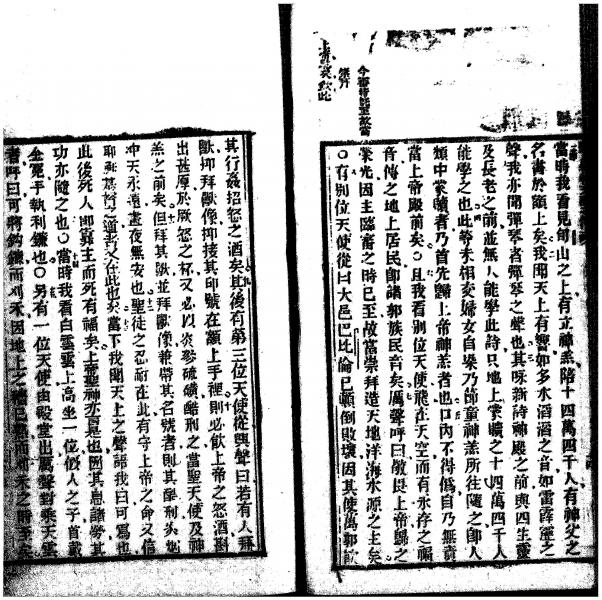 當時我看見郇山之上有立神羔陪十四萬四千人有神父之
名書於額上矣我聞天上有聲如多水滔滔之音如雷霹靂之
聲我亦聞彈琴者彈琴之聲也其咏新詩神殿之前與四生靈
及長老之前並無人能學此詩只地上蒙贖之十四萬四千人
能學之也此等未相交婦女自染乃節童神羔所往隨之卽人
類中蒙贖者乃首先歸上帝神羔者也口內不得僞自乃無責
當上帝殿前矣○且我看別位天使飛在天空而有永存之福
音傳之地上居民卽諸郭族民音矣厲聲呼曰敬畏上帝歸之
榮光因主臨審之時已至故當崇拜造天地洋海水源之主矣
○有別位天使從曰大邑巴比倫已頓倒敗壞因其使萬郭飲
其行姦招怒之酒矣其後有第三位天使從興聲曰若有人拜
獸抑拜獸像抑接其印號在額上手裡則必飲上帝之怒酒斟
出甚原於厥怒之杯又必以炎燬硫磺酷刑之當聖天使及神
羔之前矣但拜其獸並拜獸像兼帶其名號者則其刑
冲天永遠晝夜無安也聖徒之忍耐在此有守上帝之命又信
耶穌基督之道者又在此也矣當下我聞天上之聲語我曰可寫也
此後死人卽靠主而死有福矣上帝聖神亦言是也因其息諸勞其
功亦隨之也○當時我看白雲雲上高坐一位似人之子首戴
金冕手執利鐮也○另有一位天使由殿堂出厲聲對乘雲
者呼曰可將鈎鐮而刈禾因地上之已熟而刈禾之時至矣